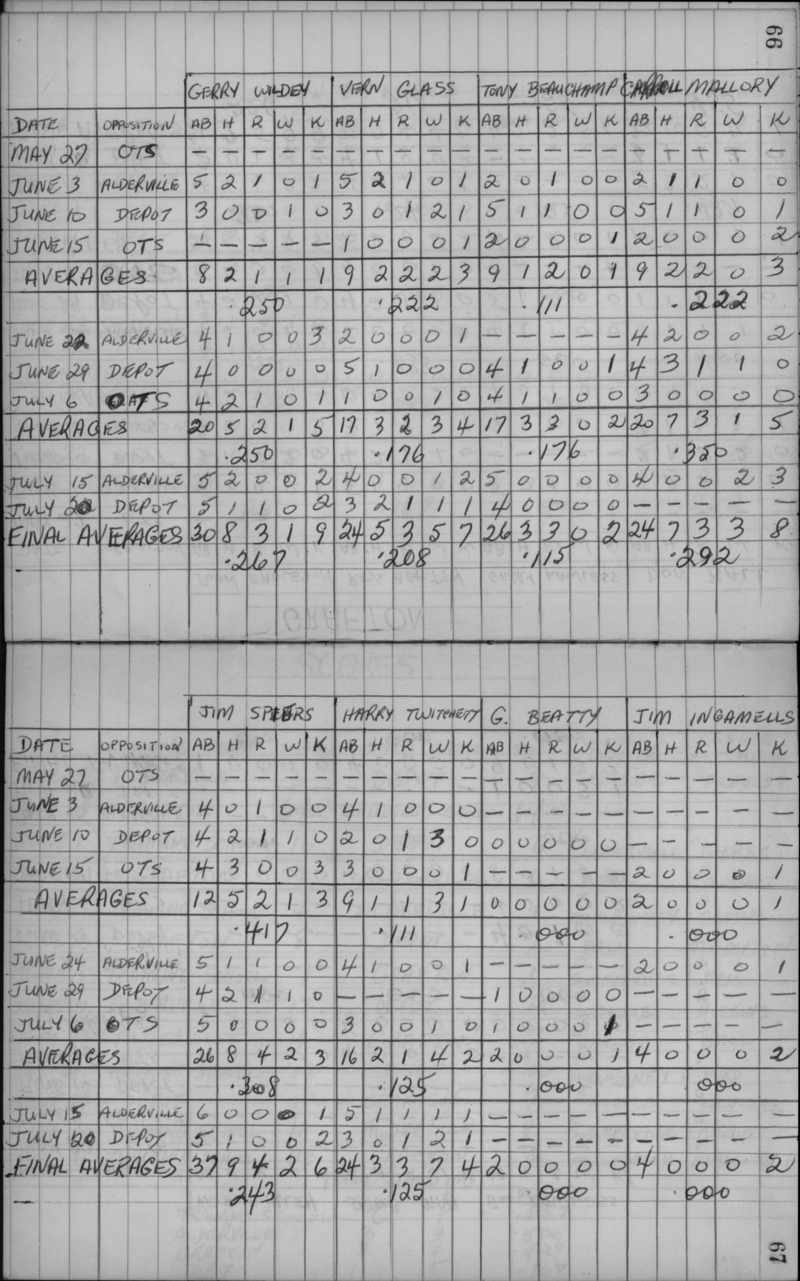 66
GERRY WILDEY VERN GLASS TONY BEAUCHAMP CARROLL MALLORY
DATE OPPOSITION AB H R W K AB H R W K AB H R W K AB H R W K
MAY 27 OTS — — — — — — — — — — — — — — — — — — — —
JUNE 3 ALDERVILLE 5 2 1 0 1 5 2 1 0 1 2 0 1 0 0 2 1 1 0 0
JUNE 10 DEPOT 3 0 0 1 0 3 0 1 2 1 5 1 1 0 0 5 1 1 0 1
JUNE 15 OTS — — — — — 1 0 0 0 1 2 0 0 0 1 2 0 0 0 2
AVERAGES 8 2 1 1 1 9 2 2 2 3 9 1 2 0 1 9 2 2 0 3
.250 .222 .111 .222
JUNE 22 ALDERVILLE 4 1 0 0 3 2 0 0 0 1 — — — — — 4 2 0 0 2
JUNE 29 DEPOT 4 0 0 0 0 5 1 0 0 0 4 1 0 0 1 4 3 1 1 0
JULY 6 OTS 4 2 1 0 1 1 0 0 1 0 4 1 1 0 0 3 0 0 0 0
AVERAGES 20 5 2 1 5 17 3 2 3 4 17 3 3 0 2 20 7 3 1 5
.250 .176 .176 .350
JULY 15 ALDERVILLE 5 2 0 0 2 4 0 0 1 2 5 0 0 0 0 4 0 0 2 3
JULY 20 DEPOT 5 1 1 0 2 3 2 1 1 1 4 0 0 0 0 — — — — —
FINAL AVERAGES 30 8 3 1 9 24 5 3 5 7 26 3 3 0 2 24 7 3 3 8
.267 .208 .115 .292
JIM SPIERS HARRY TWITCHETT G. BEATTY JIM INGAMELLS
DATE OPPOSITION AB H R W K AB H R W K AB H R W K AB H R W K
MAY 27 OTS — — — — — — — — — — — — — — — — — — — —
JUNE 3 ALDERVILLE 4 0 1 0 0 4 1 0 0 0 — — — — — — — — — —
JUNE 10 DEPOT 4 2 1 1 0 2 0 1 3 0 0 0 0 0 0 — — — — —
JUNE 15 OTS 4 3 0 0 3 3 0 0 0 1 — — — — — 2 0 0 0 1
AVERAGES 12 5 2 1 3 9 1 1 3 1 0 0 0 0 0 2 0 0 0 1
.417 .111 .000 .000
JUNE 24 ALDERVILLE 5 1 1 0 0 4 1 0 0 1 — — — — — 2 0 0 0 1
JUNE 29 DEPOT 4 2 1 1 0 — — — — — 1 0 0 0 0 — — — — —
JULY 6 OTS 5 0 0 0 0 3 0 0 1 0 1 0 0 0 1 — — — — —
AVERAGES 26 8 4 2 3 16 2 1 4 2 2 0 0 0 1 4 0 0 0 2
.308 .125 .000 .000
JULY 15 ALDERVILLE 6 0 0 0 1 5 1 1 1 1 — — — — — — — — — —
JULY 20 DEPOT 5 1 0 0 2 3 0 1 2 1 — — — — — — — — — —
FINAL AVERAGES 37 9 4 2 6 24 3 3 7 4 2 0 0 0 0 4 0 0 0 2
.243 .125 .000 .000
67